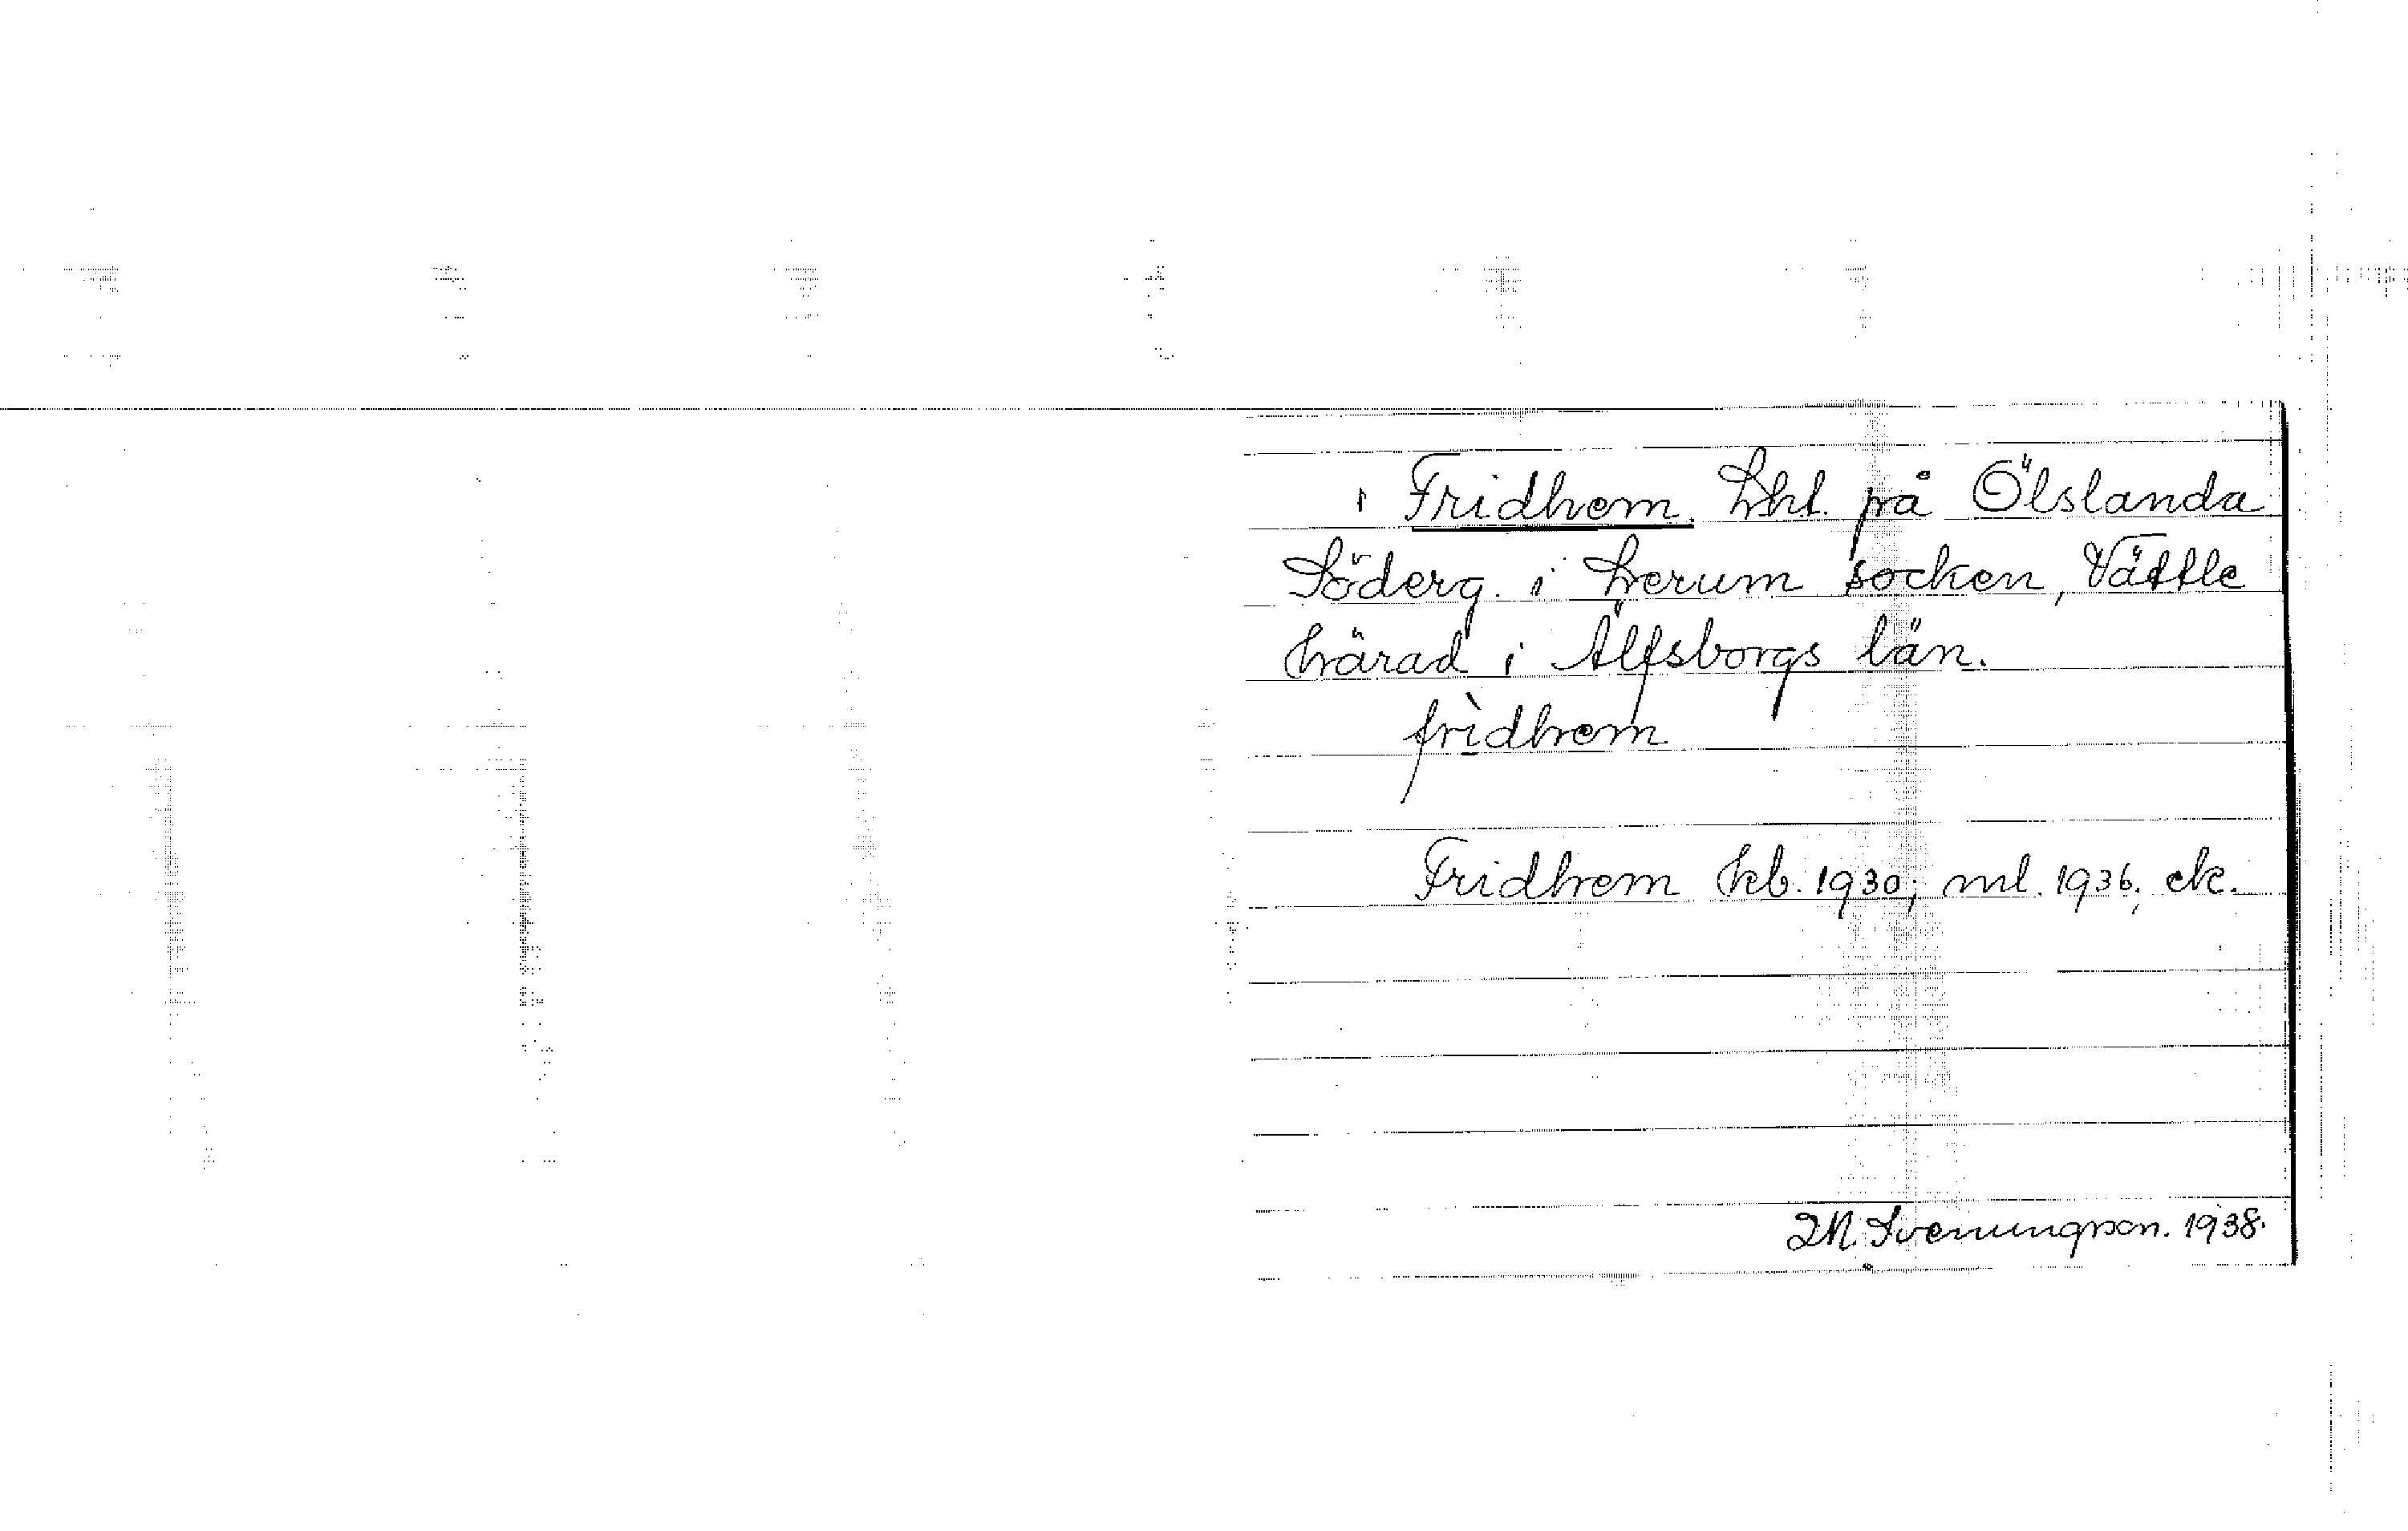 1 Fridhem. Lht. på Ölslanda
Söderg. i Lerum socken, Vättle
härad i Älfsborgs län.
frìdhem
Fridhem hb. 1930; ml. 1936, ek.
M. Svenungsson. 1938.